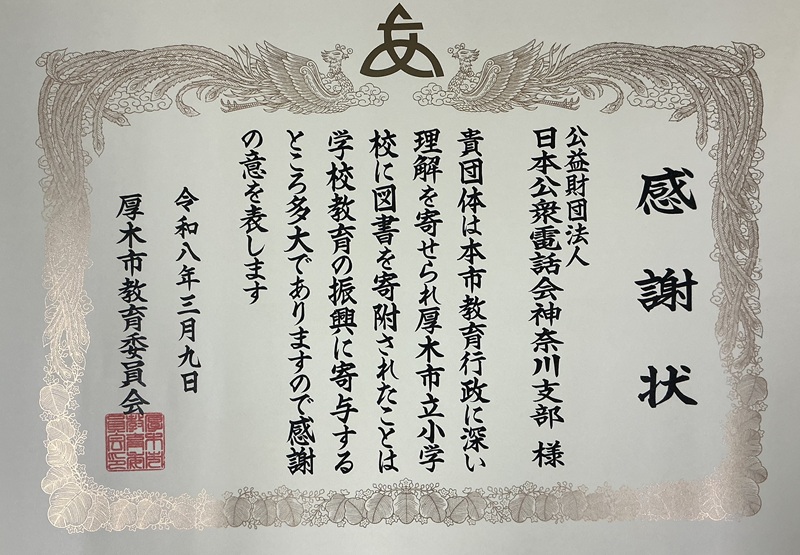 感謝状
公益財団法人
日本公衆電話会神奈川支部 様
貴団体は本市教育行政に深い
理解を寄せられ厚木市立小学
校に図書を寄附されたことは
学校教育の振興に寄与する
ところ多大でありますので感謝
の意を表します
令和八年三月九日
厚木市教育委員会